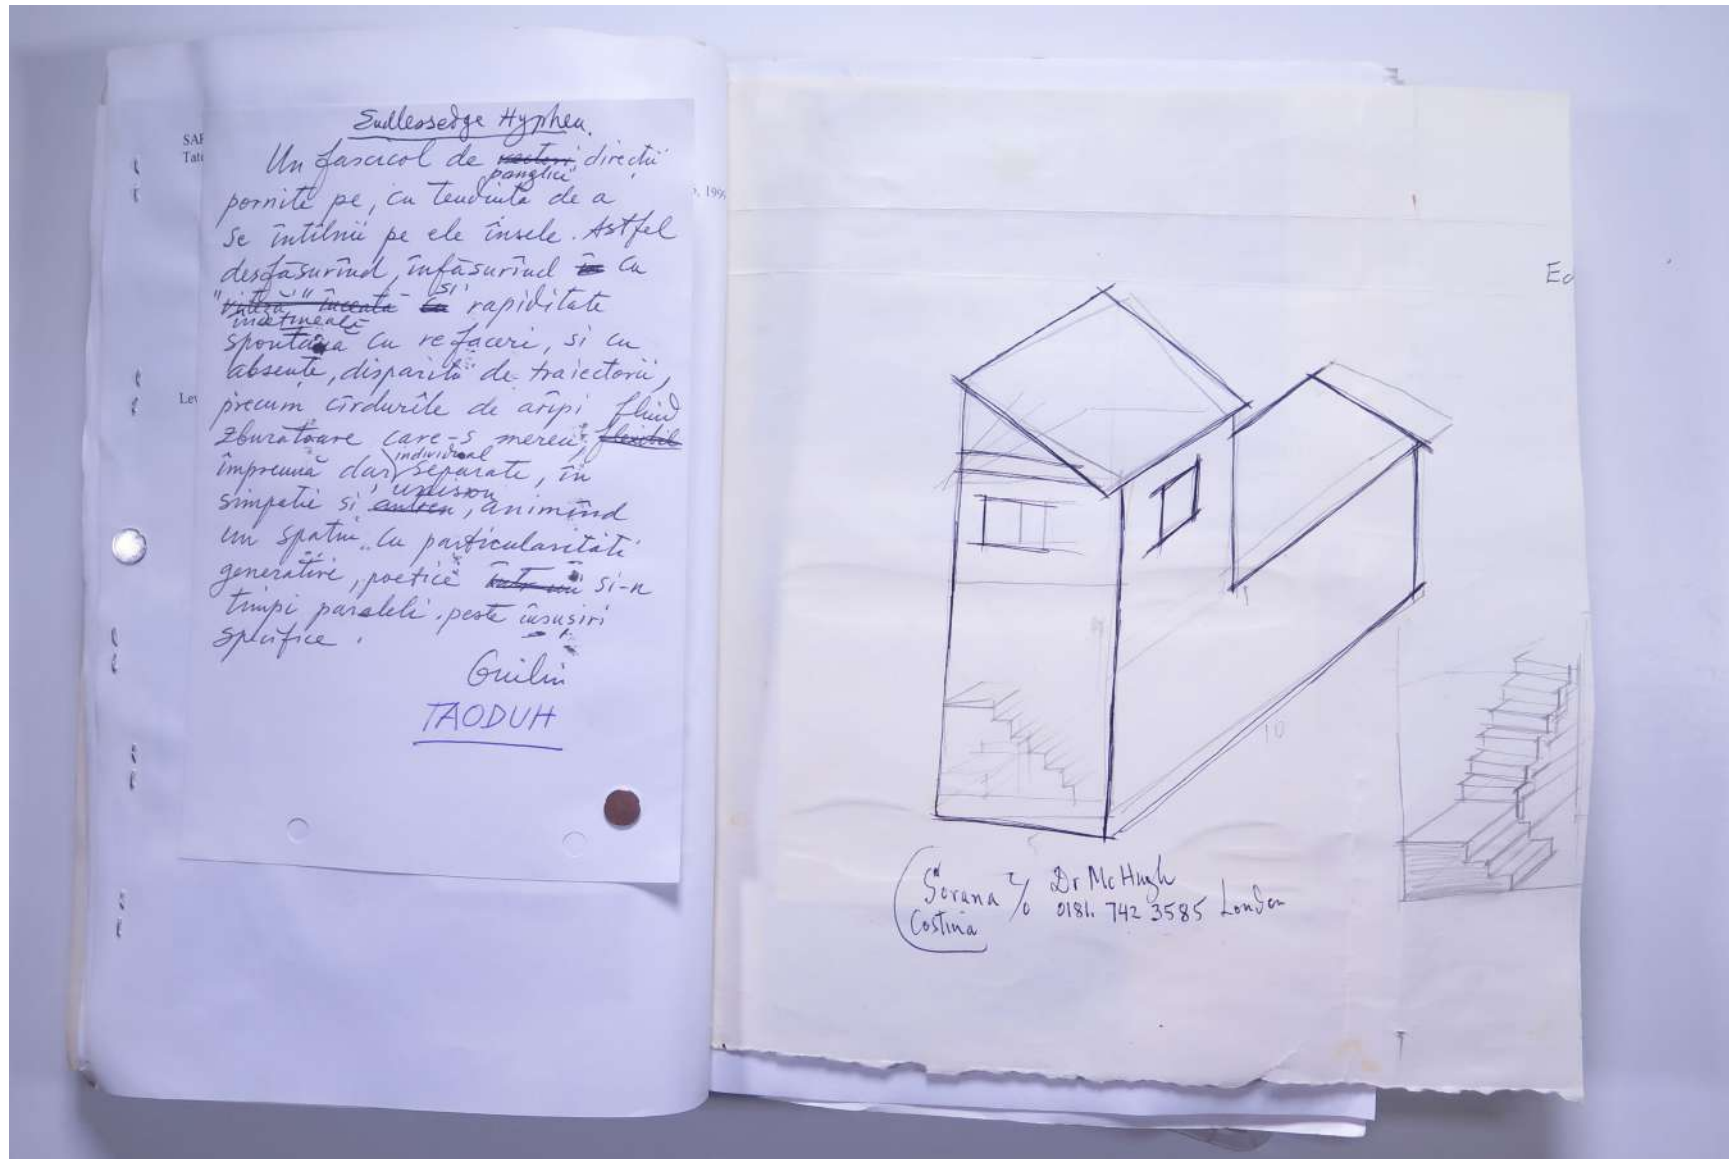 SAF
Tate
, 199
Lev
Endlessedge Hyphen.
Un fascicol de vectori, direcții
panglici"
pornite pe, cu tendinta de a
se întîlnii pe ele însele. Astfel
desfăsurînd, înfăsurînd în cu
"viteză" înceată cu si rapiditate
încetineală
spontană cu refaceri, si cu
absențe, disparitii de traiectorii,
precum cîrdurile de aripi fluid
zburatoare care-s mereu, flexibil
împreună dar individual separate, în
simpatie si antren, unison animînd
un spatiu cu particularităti
generative, poetice într-un si-n
timpi paraleli peste însusiri
specifice.
Guilin
TAODUH
Ed
10
Sorana c/o Dr McHugh
Costina 0181. 742 3585 London